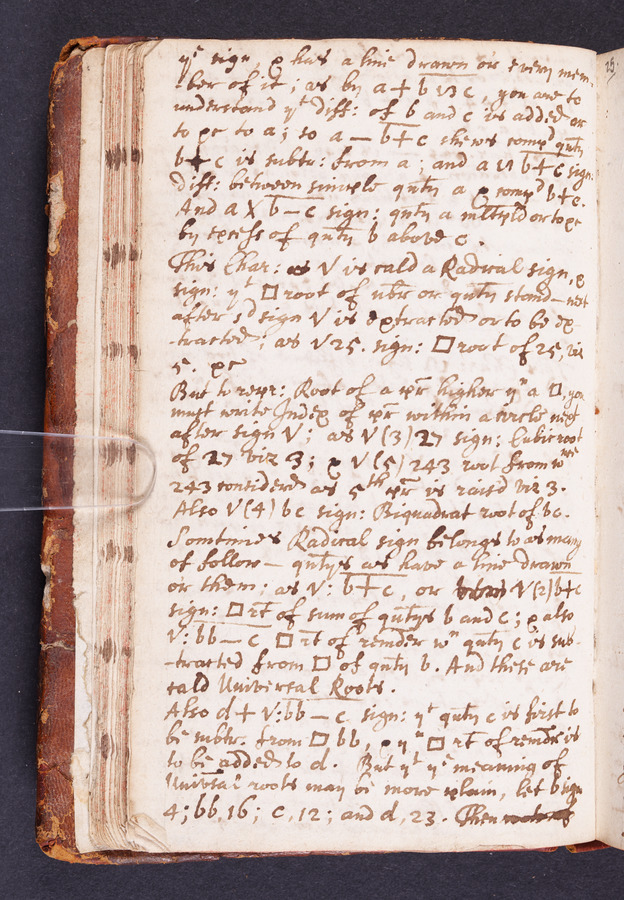 yͤ sign, & has a line drawn or every mem-
-ber of it; as by a + b ∽ c, you are to
understand yͭ diff: of b and c is added or
to be to a; so a — b+c shews compᵈ qnty
b+c is subtr: from a; and a ∽ b+c sign:
Diff: between simple qnty a & compᵈ b+c.
And a X b — c sign: qnty a mltpld or to be
by excess of qnty b above c.
This Char: √ is cald a Radical sign, &
sign: yͭ □ root of nbr or qnty stand— next
after sᵈ sign √ is extracted or to be ex-
-tracted; as √25. sign: □ root of 25, viz
5. &c
But to repr: Root of a pr higher yⁿ a □, you
must write Index of pr within a circle next
after sign √; as √(3) 27 sign: Cubic root
of 27 viz 3; & √(5) 243 root from wͨʰ
243 considerd as 5ᵗʰ pr is raisd viz 3.
Also √(4) bc sign: Biquadrat root of bc.
Somtimes Radical sign belongs to as many
of follow— qntys as have a line drawn
or them; as √: b+c, or √(2) b+c
sign: □ rt of sum of qntys b and c; & also
√: bb — c □ rt of remder wⁿ qnty c is sub-
-tracted from □ of qnty b. And these are
cald Universal Roots.
Also d + √: bb — c. sign: yͭ qnty c is first to
be subtr. from □ bb, & yⁿ □ rt of remdr is
to be added to d. But yͭ yͤ meaning of
Universal roots may be more plain, let b sign
4; bb, 16; c, 12; and d, 23. Then
15.